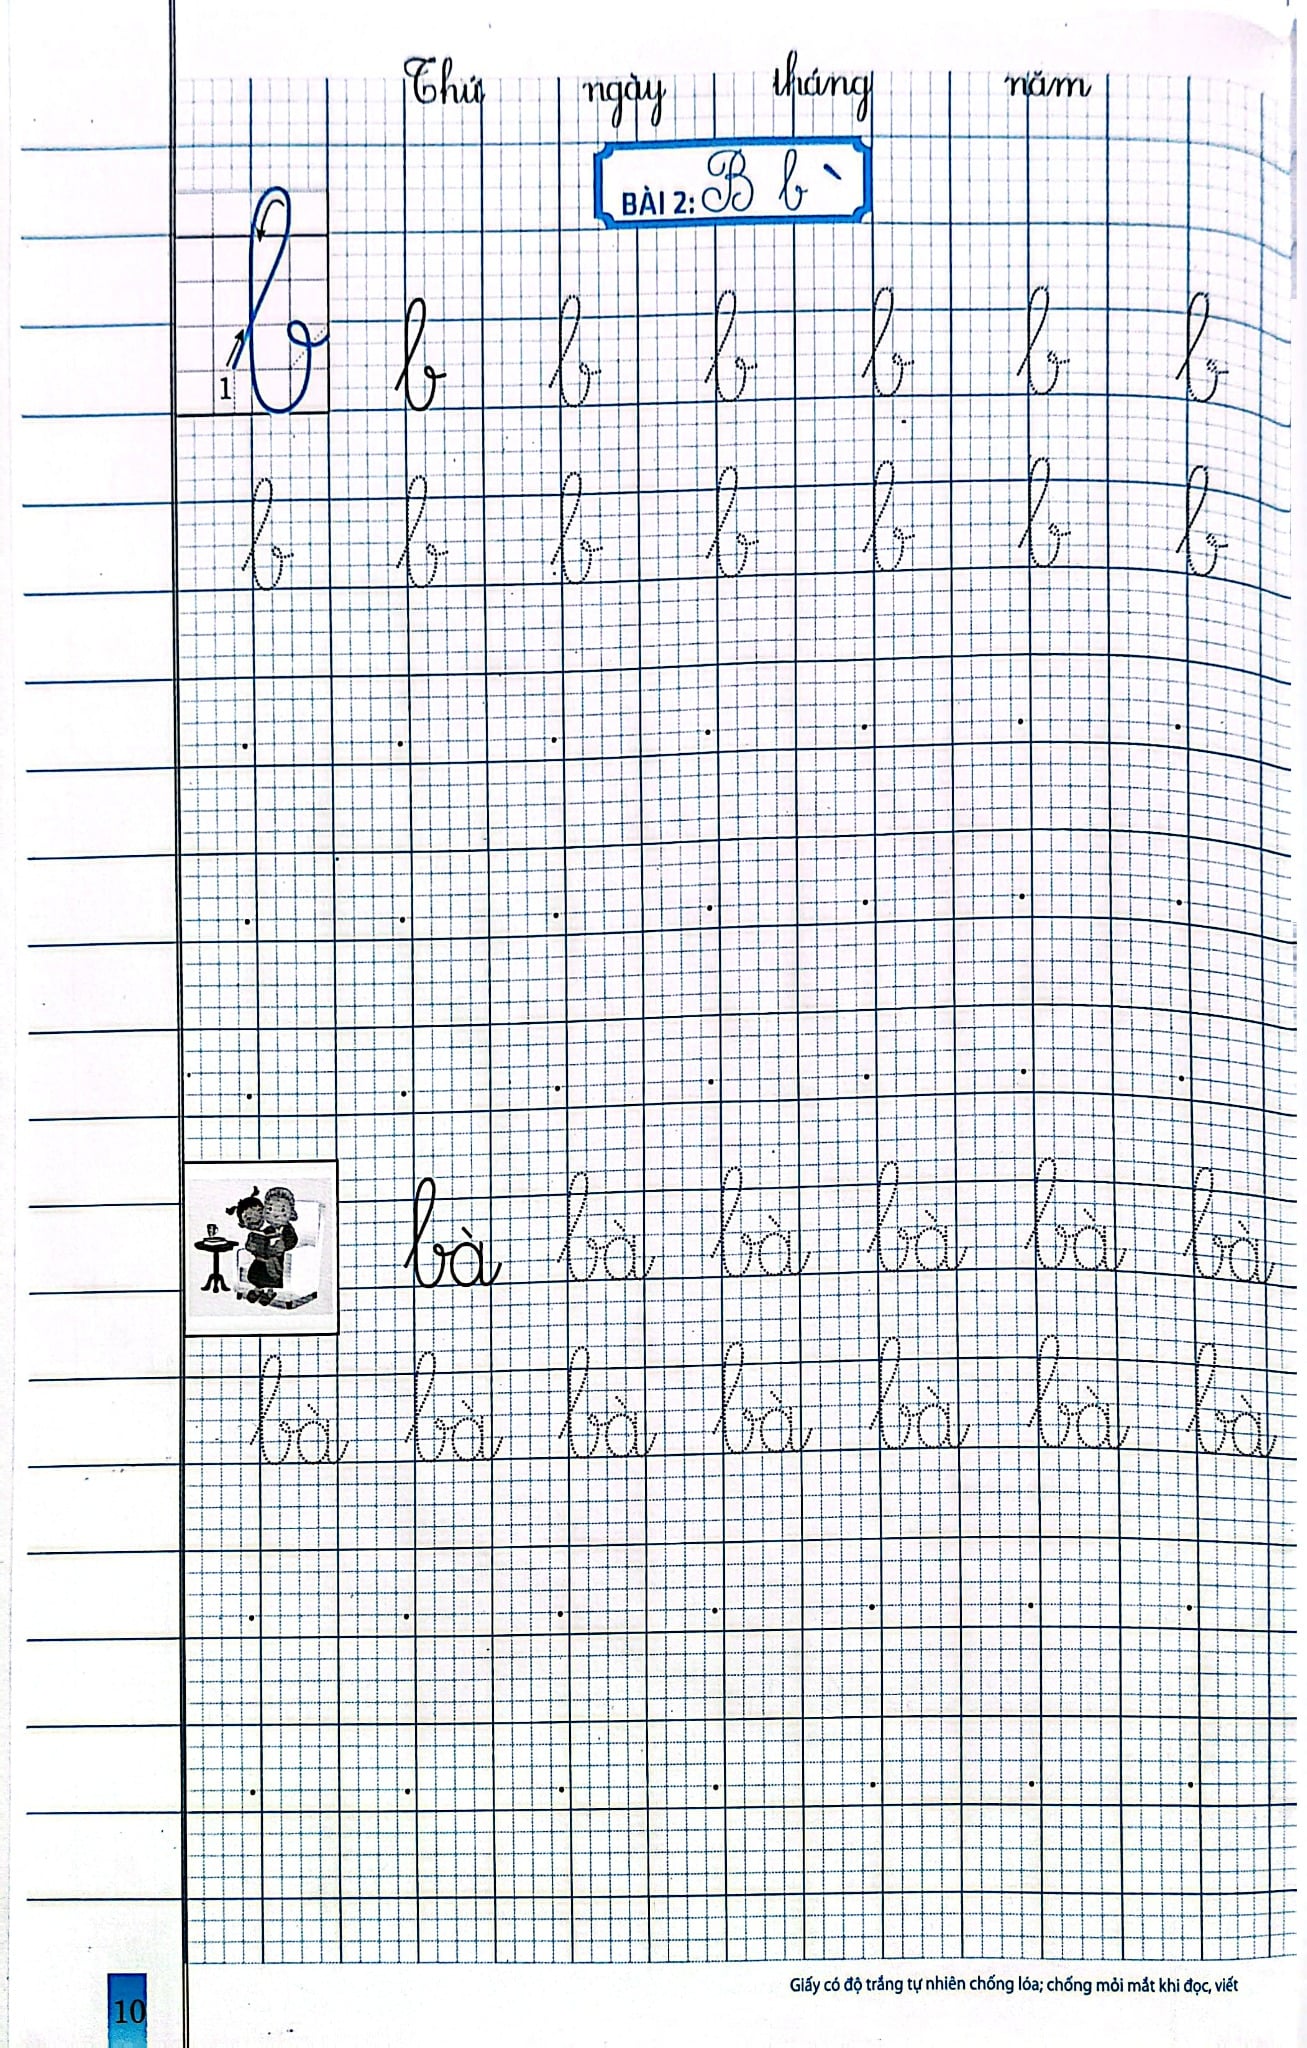 Thứ ngày tháng năm
BÀI 2: B b `
1
b b b b b b b
b b b b b b b
bà bà bà bà bà bà
bà bà bà bà bà bà bà
Giấy có độ trắng tự nhiên chống lóa; chống mỏi mắt khi đọc, viết
10